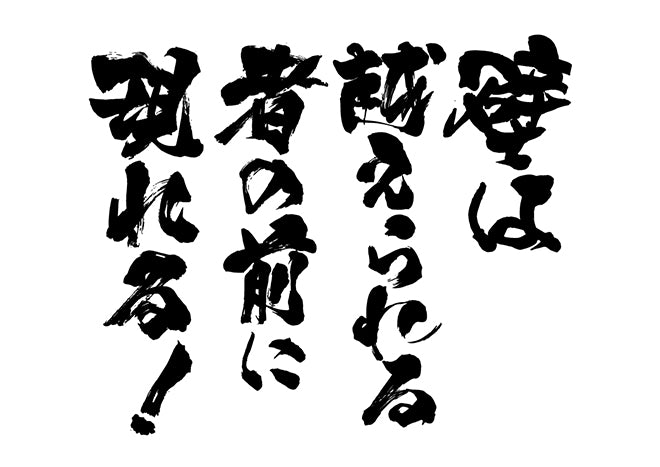 壁は
越えられる
者の前に
現れる!